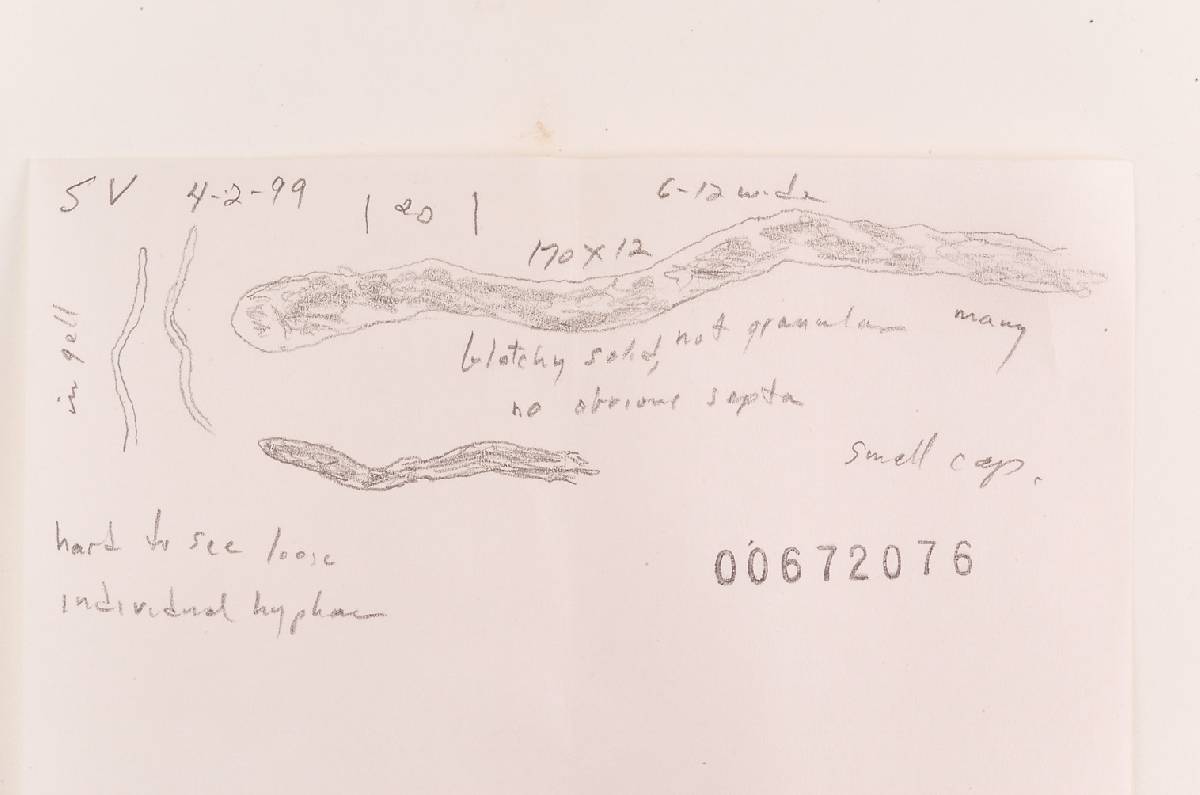 SV 4-2-99
| 20 |
6-12 wide
170 X 12
in gell
blotchy solid, not granular many
no obvious septa
small cap.
hard to see loose
individual hyphae
00672076